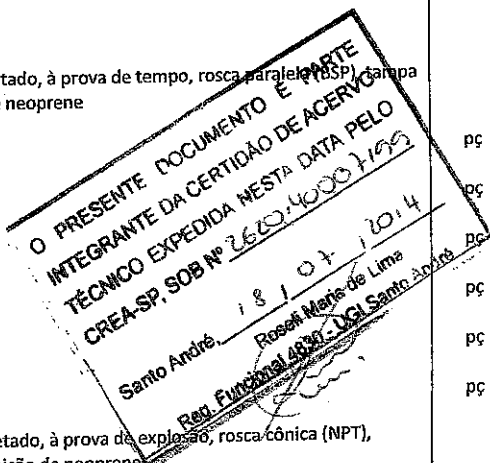 tado, à prova de tempo, rosca paralela (BSP), tampa
neoprene
O PRESENTE DOCUMENTO É PARTE
INTEGRANTE DA CERTIDÃO DE ACERVO
TÉCNICO EXPEDIDA NESTA DATA PELO
CREA-SP, SOB Nº
Santo André, 18 / 07 / 2014
Roseli Maria de Lima
Reg. Funcional 4830 - UGI Santo André
pç
pç
pç
pç
pç
pç
etado, à prova de explosão, rosca cônica (NPT),
de neoprene